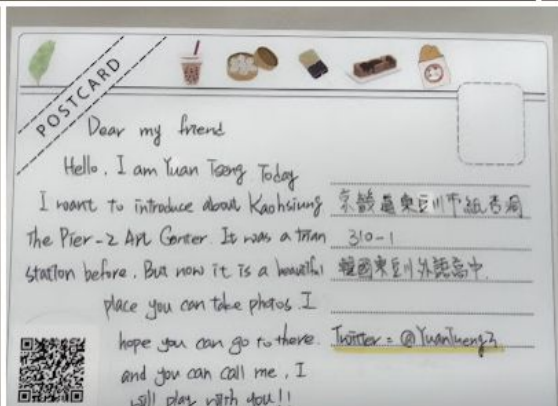 POSTCARD
Dear my friend
Hello. I am Yuan Tseng Today
I want to introduce about Kaohsiung
The Pier-2 Art Center. It was a train
station before. But now it is a beautiful
place you can take photos. I
hope you can go to there.
and you can call me. I
will play with you!!
京畿道東豆川市紙杏洞
310-1
韓國東豆川外語高中.
Twitter = @YuanTueng3